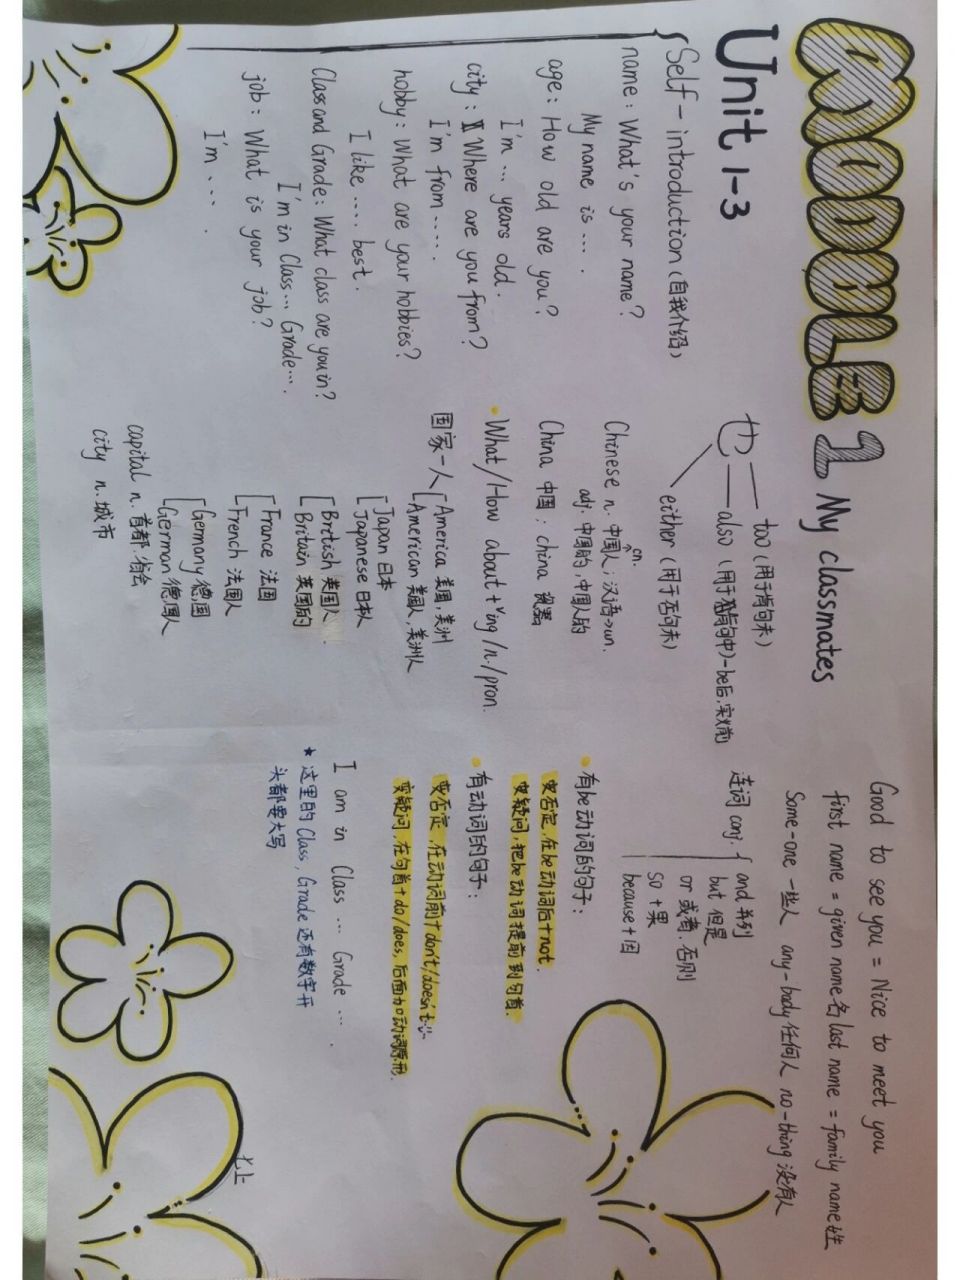 MODULE 1 My classmates
Unit 1-3
Self-introduction (自我介绍)
name: What's your name?
My name is ….
age: How old are you?
I'm … years old.
city: Where are you from?
I'm from ….
hobby: What are your hobbies?
I like …. best.
Class and Grade: What class are you in?
I'm in Class… Grade….
job: What is your job?
I'm ….
也
too (用于肯句末)
also (用于肯句中)-be后,实义前
either (用于否句末)
Chinese n. 中国人; 汉语→un.
cn.
adj. 中国的, 中国人的
China 中国; china 瓷器
What/How about + ving/n./pron.
国家一人
America 美国, 美洲
American 美国人, 美洲人
Japan 日本
Japanese 日本人
British 英国人
Britain 英国的
France 法国
French 法国人
Germany 德国
German 德国人
capital n. 首都, 省会
city n. 城市
Good to see you = Nice to meet you
first name = given name 名 last name = family name 姓
Some-one 一些人 any-body 任何人 no-thing 没有人
连词 conj.
and 并列
but 但是
or 或者, 否则
so + 果
because + 因
有be动词的句子:
变否定, 在be动词后+not.
变疑问, 把be动词提前到句首.
有动词的句子:
变否定, 在动词前+don't/doesn't
变疑问, 在句首+do/does, 后面加动词原形.
I am in Class … Grade ….
★这里的Class, Grade还有数字开
头都要大写
七上